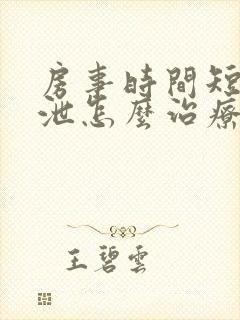 房事時間短
泄怎麼治療
王碧雲